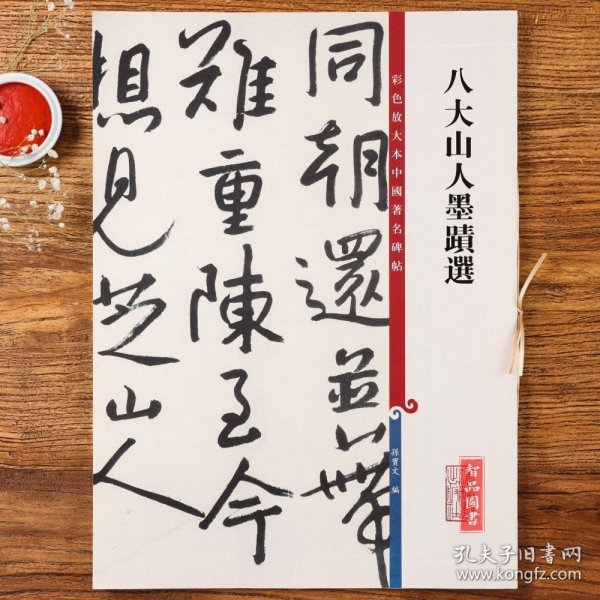 同朝還並華
難重陳至今
想見芝山人
彩色放大本中國著名碑帖
八大山人墨蹟選
孫寶文 編
智品圖書
孔夫子旧书网
www.kongfz.com